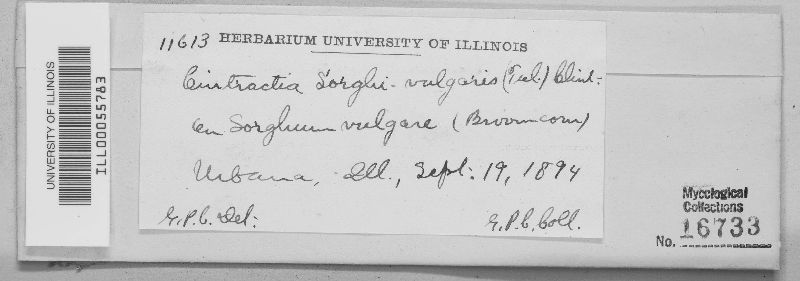 UNIVERSITY OF ILLINOIS
ILL00055783
11613 HERBARIUM UNIVERSITY OF ILLINOIS
Cintractia Sorghi-vulgaris (Tul.) Clint:
on Sorghum vulgare (Broomcorn)
Urbana, Ill., Sept: 19, 1894
G.P.C. Det:
G.P.C. Coll.
Mycological
Collections
No. 16733